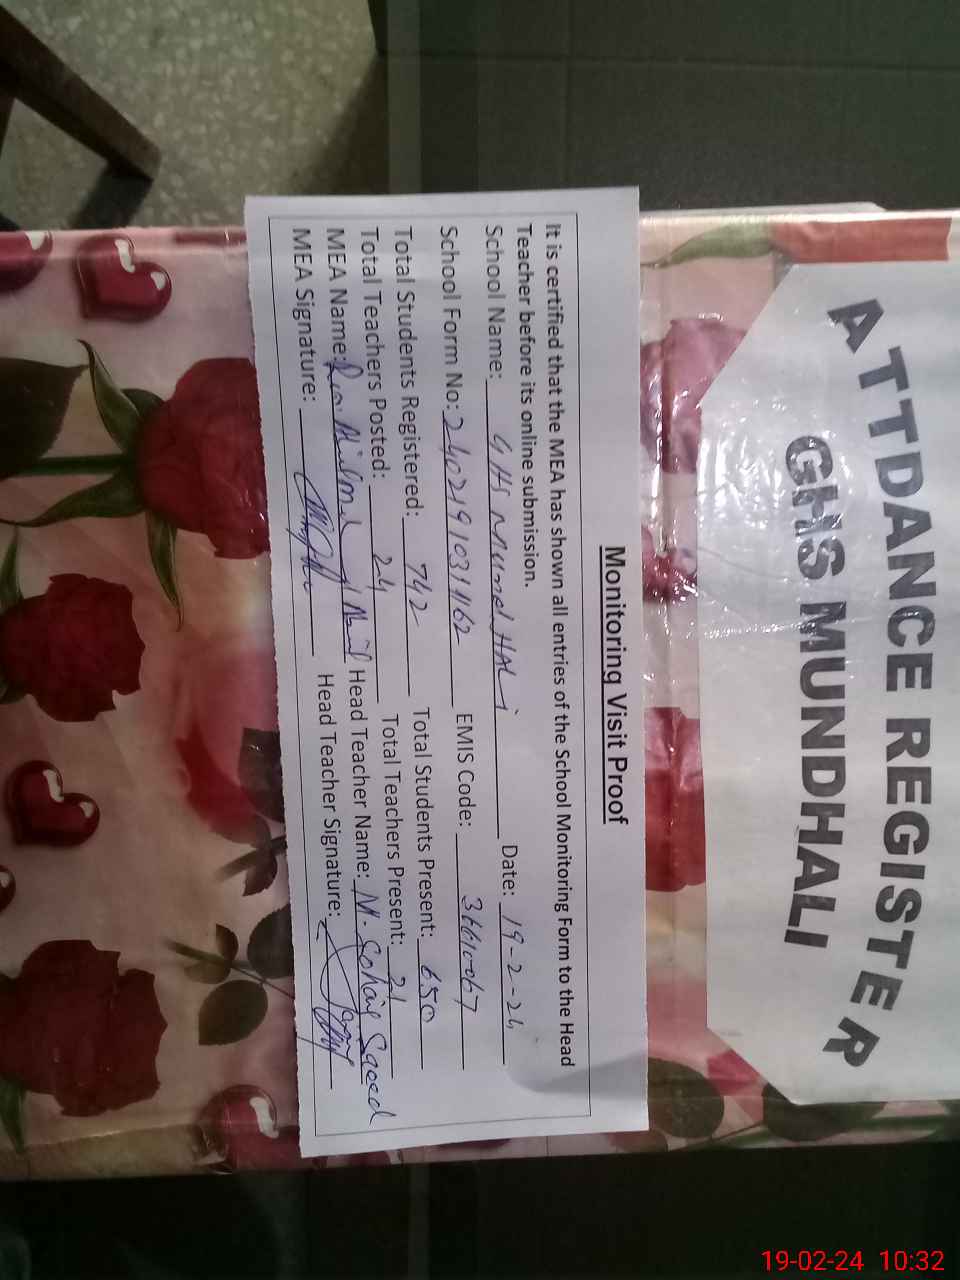 ATTDANCE REGISTER
GHS MUNDHALI
Monitoring Visit Proof
It is certified that the MEA has shown all entries of the School Monitoring Form to the Head
Teacher before its online submission.
School Name: GHS Mund HALi Date: 19-2-24
School Form No: 2402191031462 EMIS Code: 36610067
Total Students Registered: 742 Total Students Present: 650
Total Teachers Posted: 24 Total Teachers Present: 21
MEA Name: Head Teacher Name: M. Sohaib Saeed
MEA Signature: Head Teacher Signature:
19-02-24 10:32